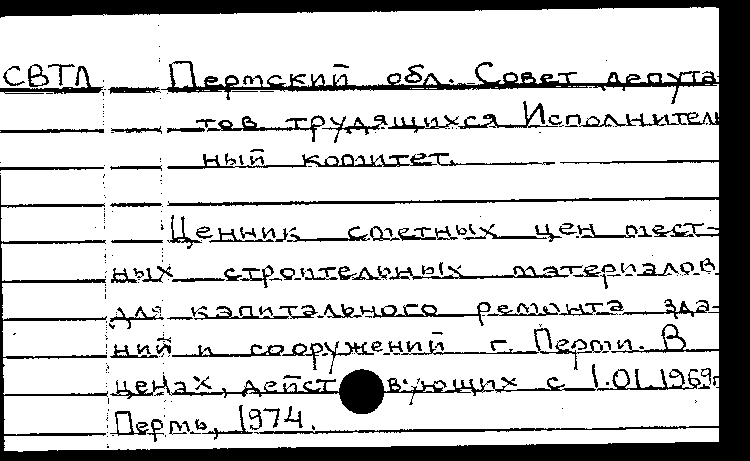 СВТЛ Пермский обл. Совет депута-
тов трудящихся Исполнитель
ный комитет.
Ценник сметных цен мест-
ных строительных материалов
для капитального ремонта зда-
ний и сооружений г. Перми. В
ценах, действующих с 1.01.1969г
Пермь, 1974.